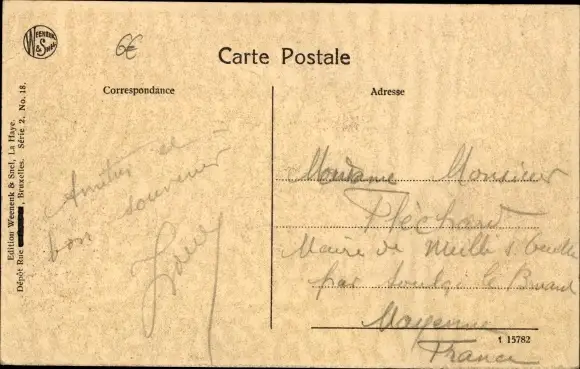 WEENENK
& SNEL
6€
Carte Postale
Correspondance
Adresse
Edition Weenenk & Snel, La Haye.
Dépôt Rue , Bruxelles. Série 2. No. 18.
Amitiés et
bon souvenir
Madame Monsieur
Pléchard
Maire de s
par le
Mayenne
France
t 15782